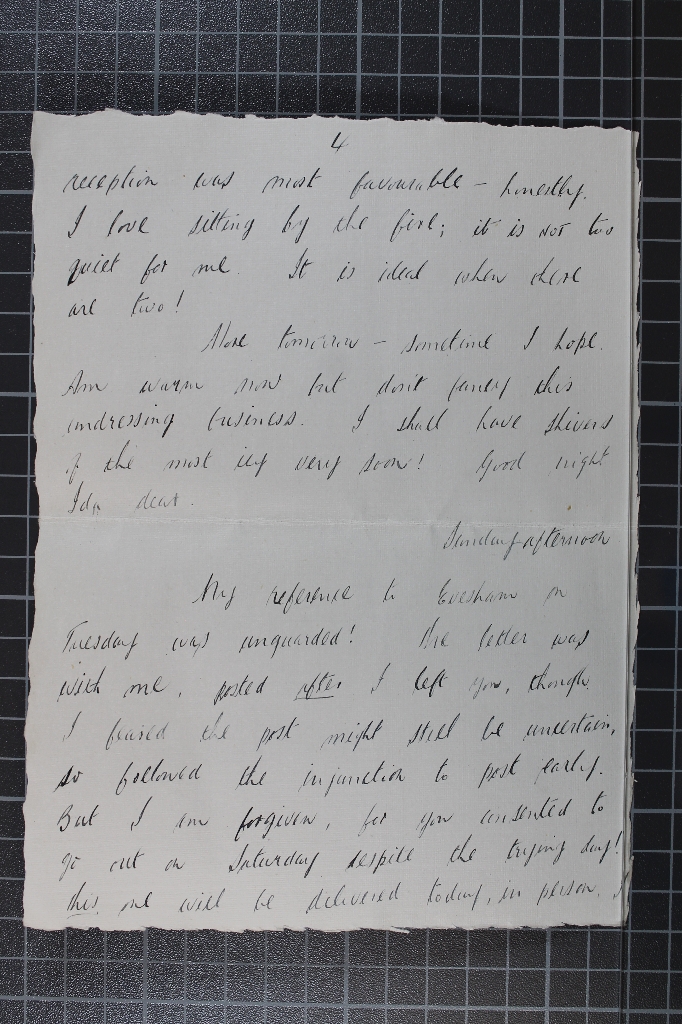 4
reception was most favourable – honestly.
I love sitting by the fire; it is not too
quiet for me. It is ideal when there
are two!
More tomorrow – sometime I hope.
Am warm now but don't fancy this
undressing business. I shall have shivers
of the most icy very soon! Good night
Ida dear.
Sunday afternoon
My reference to Evesham on
Tuesday was unguarded! The letter was
with me, posted after I left you, though
I feared the post might still be uncertain,
so followed the injunction to post early.
But I am forgiven, for you consented to
go out on Saturday despite the trying day!
This one will be delivered today, in person, I